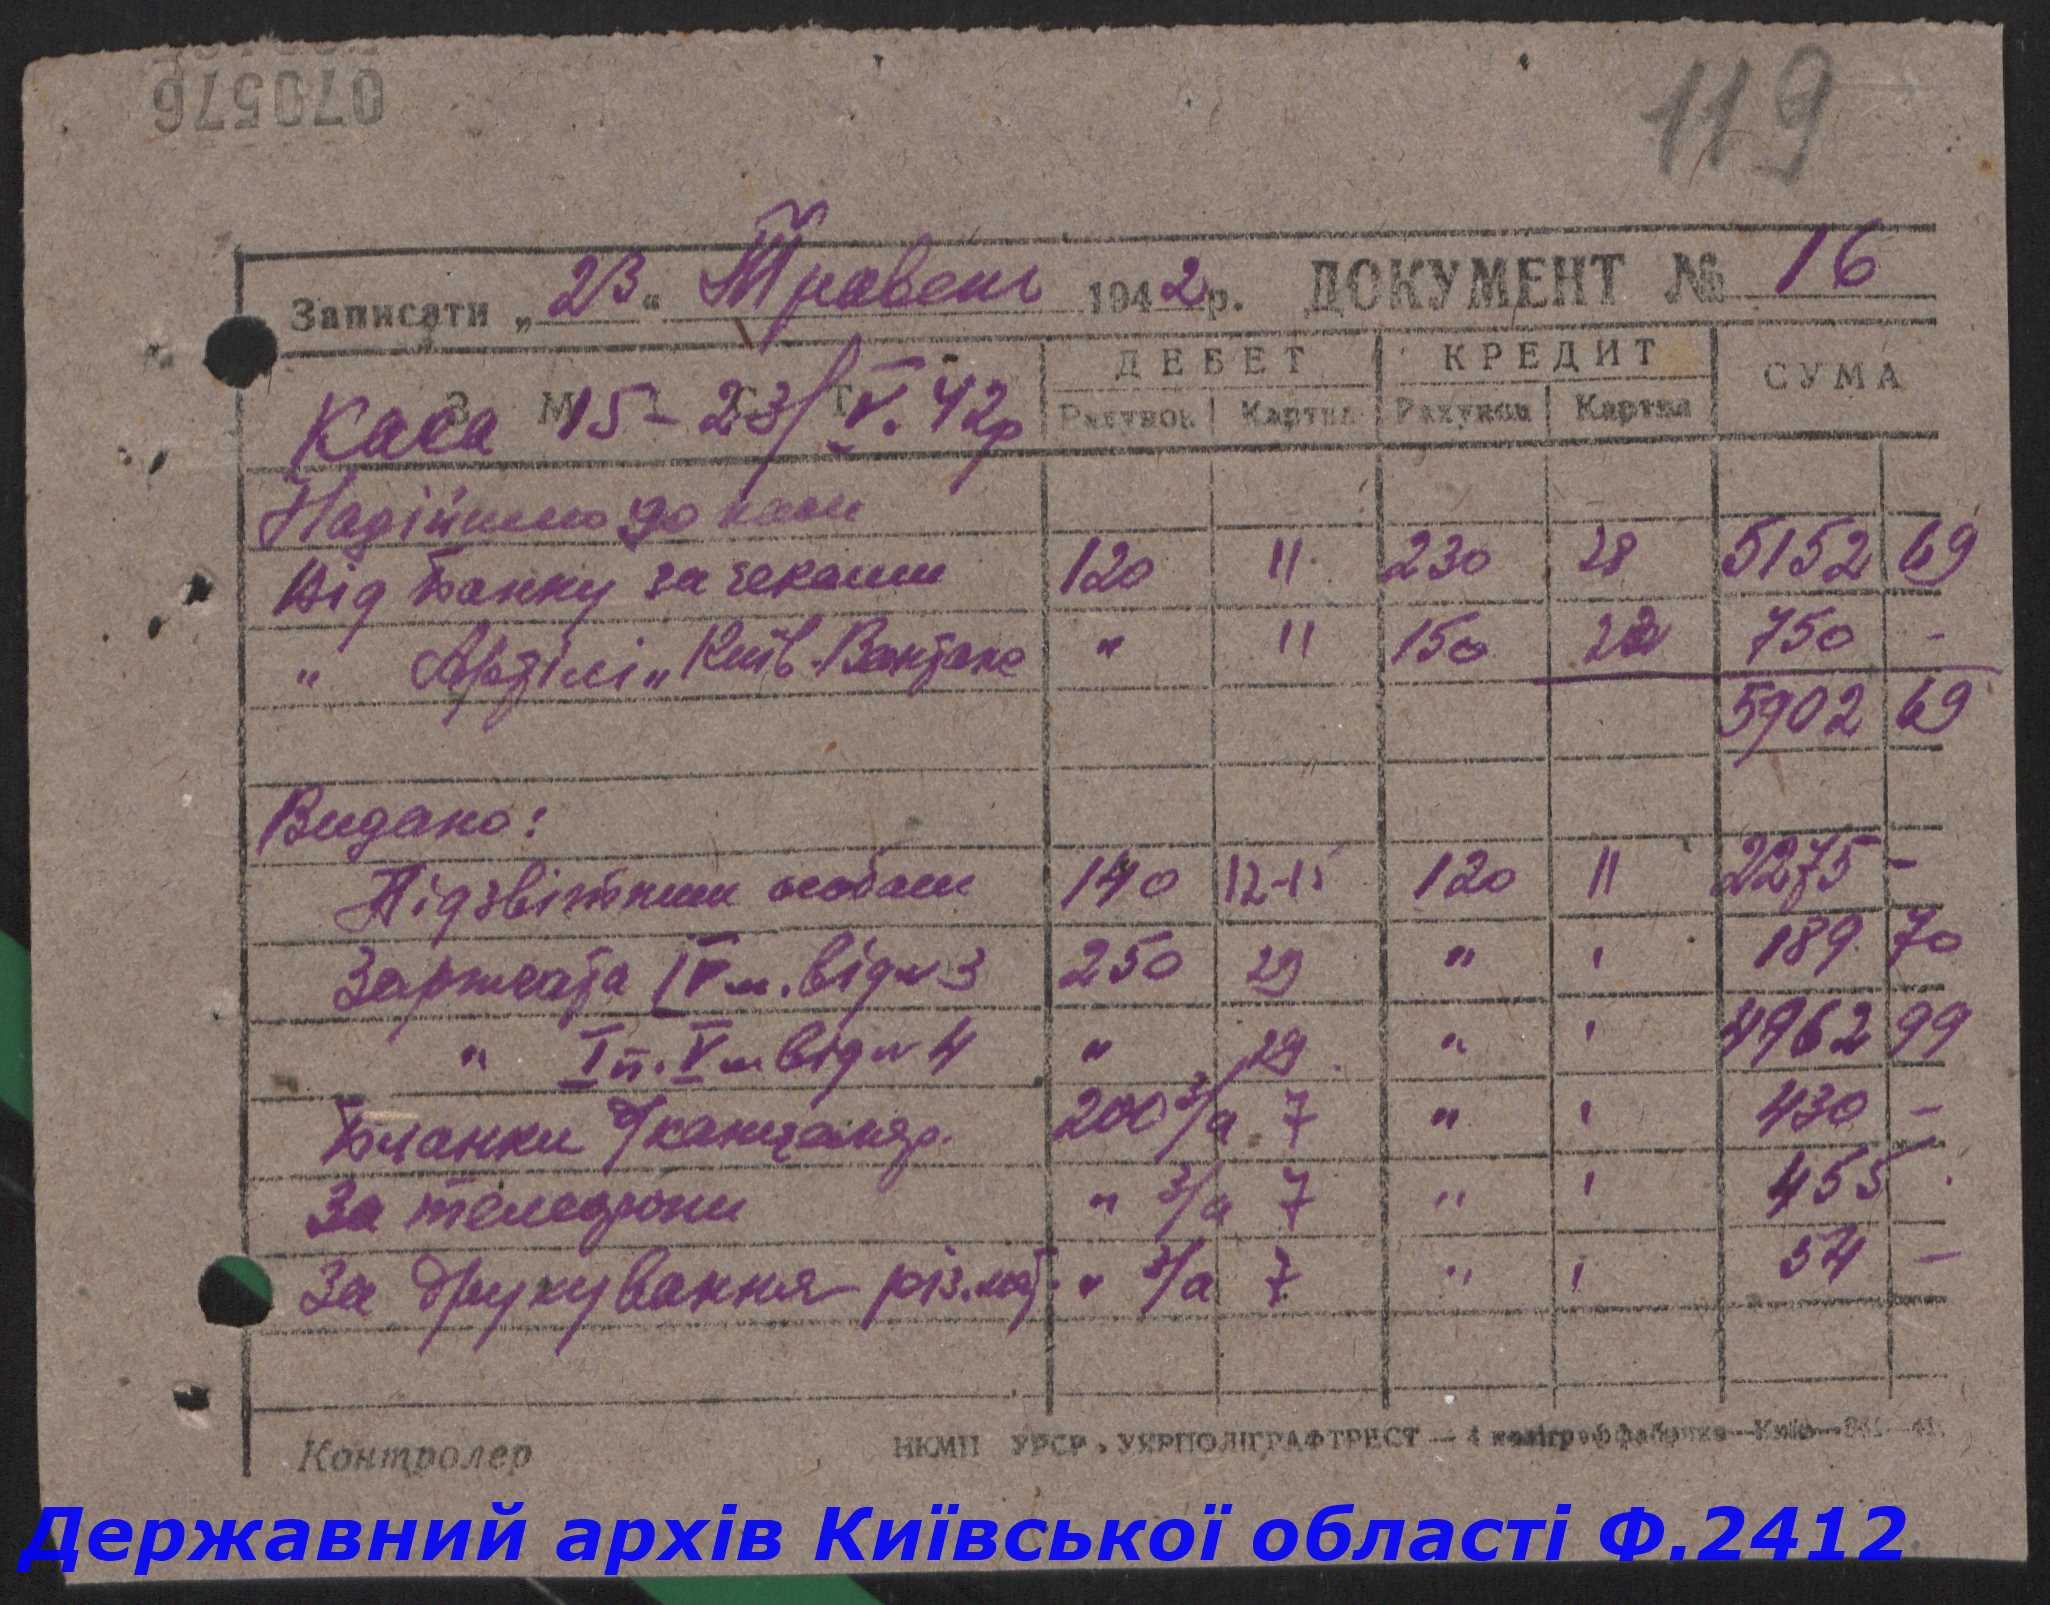 070576
119
Записати „23“ Травень 1942 р. ДОКУМЕНТ № 16
ЗМІСТ ДЕБЕТ КРЕДИТ СУМА
Рахунок Картка Рахунок Картка
Каса 15–23/V. 42р
Надійшло до каси
Від Банку за чеками 120 11 230 28 5152 69
" Артілі „Київ. Вантаж " 11 150 22 750 -
5902 69
Видано:
Підзвітним особам 140 12-15 120 11 2275 -
Зарплата IV м. від № 3 250 29 " ' 189 70
" I п. V м від № 4 " 29 " ' 4962 99
Бланки канцеляр. 200 3/а 7 " ' 430 -
За телефони " 3/а 7 " ' 455 -
За друкування різ. мат. " 3/а 7 " ' 54 -
Контролер
НКМП УРСР. УКРПОЛІГРАФТРЕСТ — 4 поліграффабрика Київ
Державний архів Київської області Ф.2412